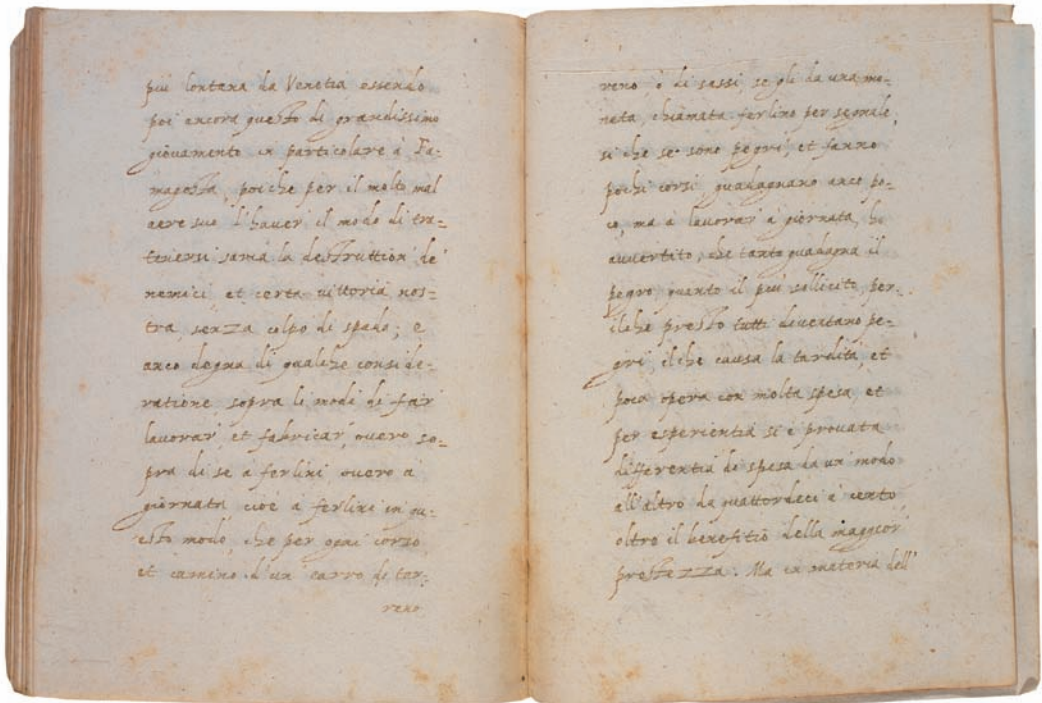 più lontana da Venetia, essendo
poi ancora questo di grandissimo
giovamento in particolare à Fa=
magosta, poi che per il molto mal
aere suo l'haver il modo di tra=
tenersi saria la destruttion de
nemici et certa vittoria nos=
tra, senza colpo di spada; e
anco degna di qualche conside=
ratione sopra li modi di far
lavorar, et fabricar, overo so=
pra di se a ferlini overo a
giornata cioè à ferlini in qu=
esto modo, che per ogni corso
et camino d'un carro di ter=
reno
reno ò di sassi, se gli da una mo=
neta, chiamata ferlino per segnale,
si che se sono pegri, et fanno
pochi corsi, guadagnano anco po=
co, ma à lavorar à giornata, hò
avvertito, che tanto guadagna il
pegro, quanto il più sollicito, per=
ilche presto tutti deventano pe=
gri, ilche causa la tardità, et
poca opera con molta spesa, et
per esperientia si è provata
differentia di spesa da un modo
all'altro da quattordeci à cento,
oltro il benefitio della maggior
prestezza. Ma in materia dell'